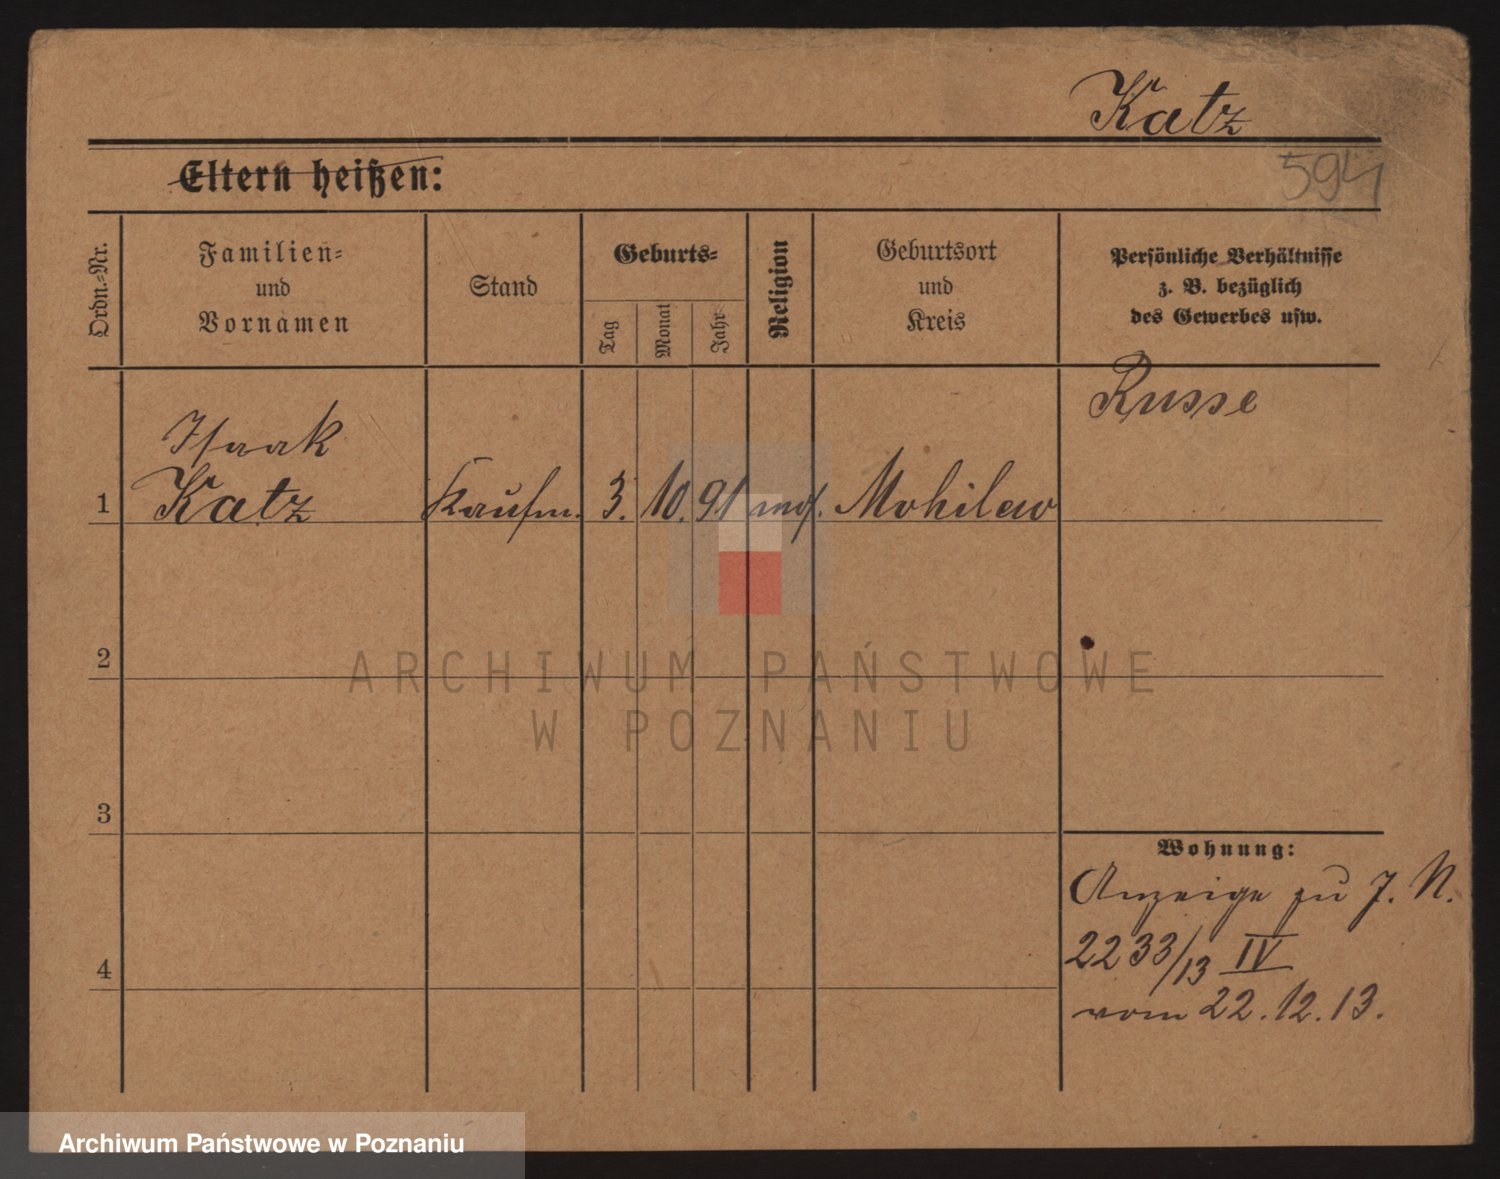 Katz
Eltern heißen:
594
Ordn.-Nr.
Familien-
und
Vornamen
Stand
Geburts-
Tag
Monat
Jahr
Religion
Geburtsort
und
Kreis
Persönliche Verhältnisse
z. B. bezüglich
des Gewerbes usw.
Russe
Isaak
1 Katz Kaufm. 3. 10. 91 mos. Mohilew
2
ARCHIWUM PAŃSTWOWE
W POZNANIU
3
Wohnung:
Anzeige zu J. N.
4 2233/13 IV
vom 22.12.13.
Archiwum Państwowe w Poznaniu